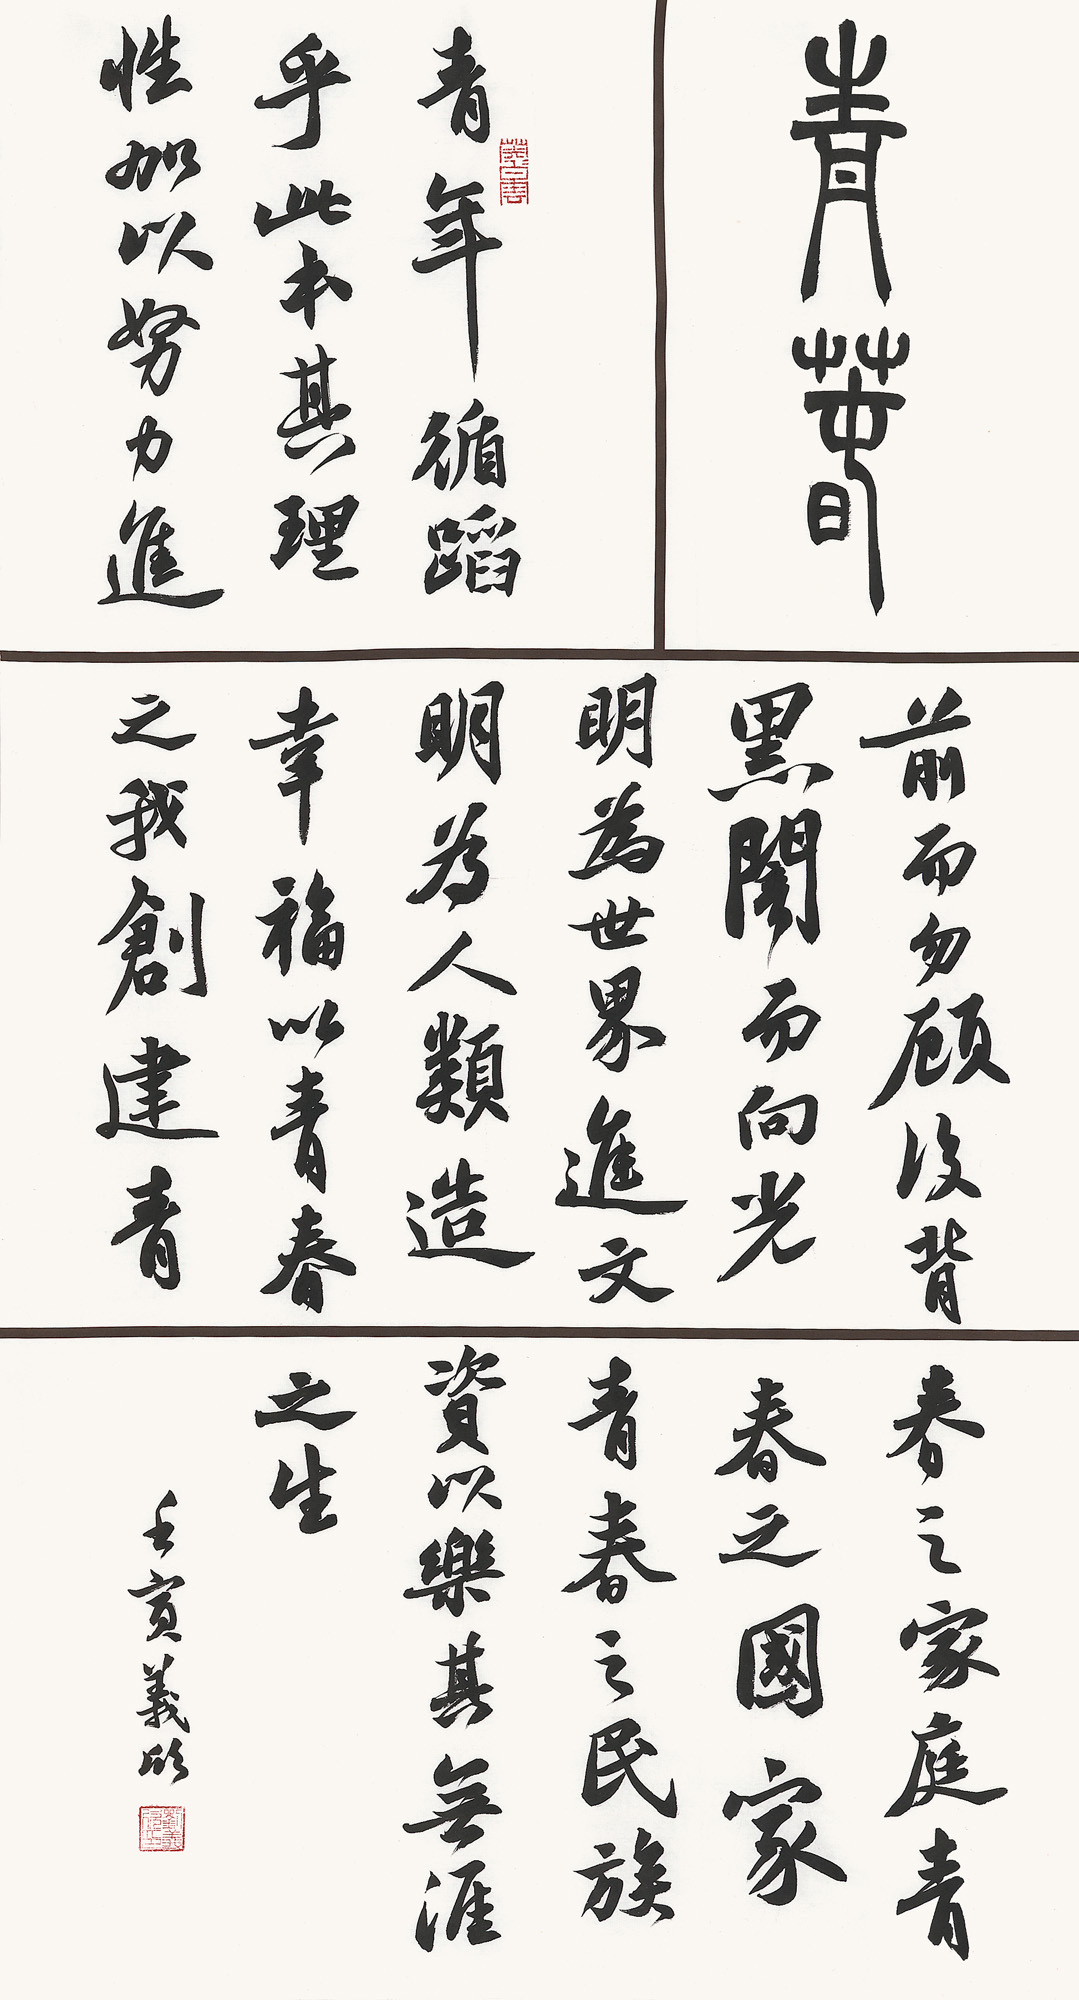 青春
青年循蹈
乎此本其理
性加以努力進
前而勿顧後背
黑闇而向光
明為世界進文
明為人類造
幸福以青春
之我創建青
春之家庭青
春之國家
青春之民族
資以樂其無涯
之生
壬寅義